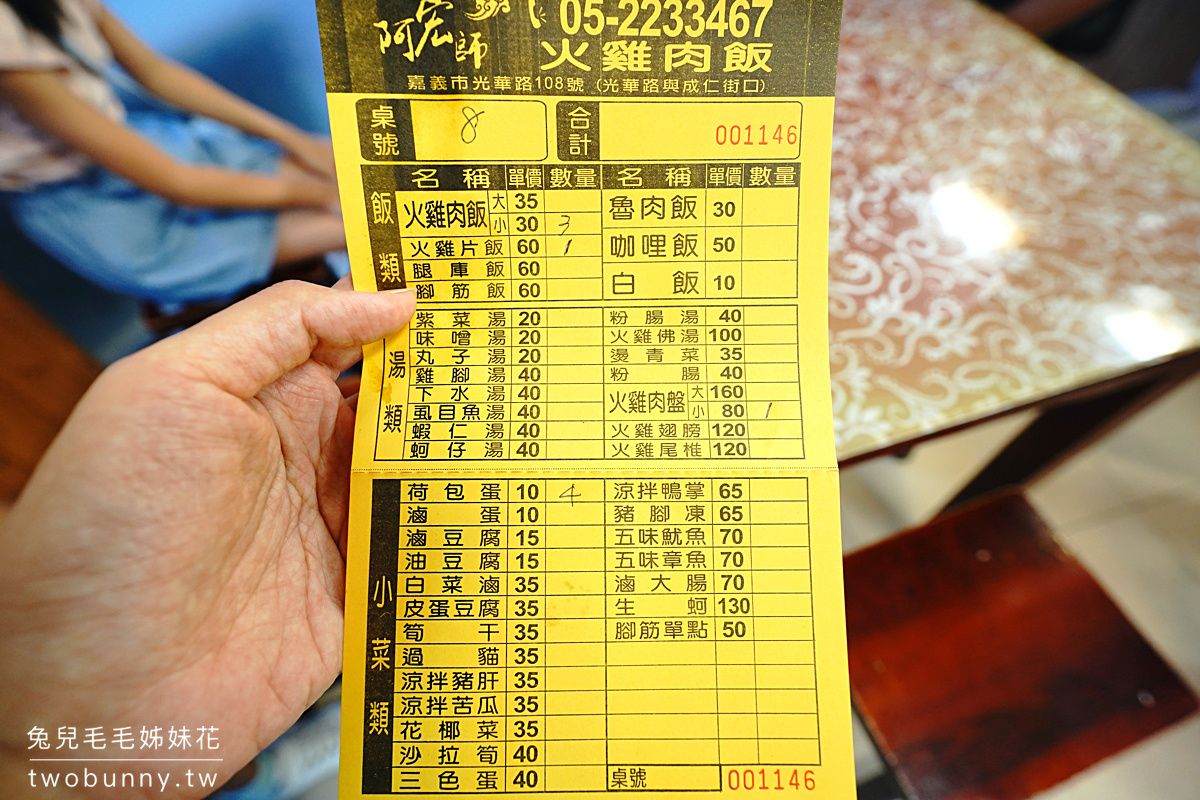 阿宏師 05-2233467
火雞肉飯
嘉義市光華路108號（光華路與成仁街口）
桌號 8 合計 001146
名稱 單價 數量 名稱 單價 數量
飯類
火雞肉飯 大 35
小 30 3
火雞片飯 60 1
腿庫飯 60
腳筋飯 60
魯肉飯 30
咖哩飯 50
白飯 10
湯類
紫菜湯 20 粉腸湯 40
味噌湯 20 火雞佛湯 100
丸子湯 20 燙青菜 35
雞腳湯 40 粉腸 40
下水湯 40 火雞肉盤 大 160
虱目魚湯 40 小 80 1
蝦仁湯 40 火雞翅膀 120
蚵仔湯 40 火雞尾椎 120
小菜類
荷包蛋 10 4 涼拌鴨掌 65
滷蛋 10 豬腳凍 65
滷豆腐 15 五味魷魚 70
油豆腐 15 五味章魚 70
白菜滷 35 滷大腸 70
皮蛋豆腐 35 生蚵 130
筍干 35 腳筋單點 50
過貓 35
涼拌豬肝 35
涼拌苦瓜 35
花椰菜 35
沙拉筍 40
三色蛋 40 桌號 001146
兔兒毛毛姊妹花
twobunny.tw